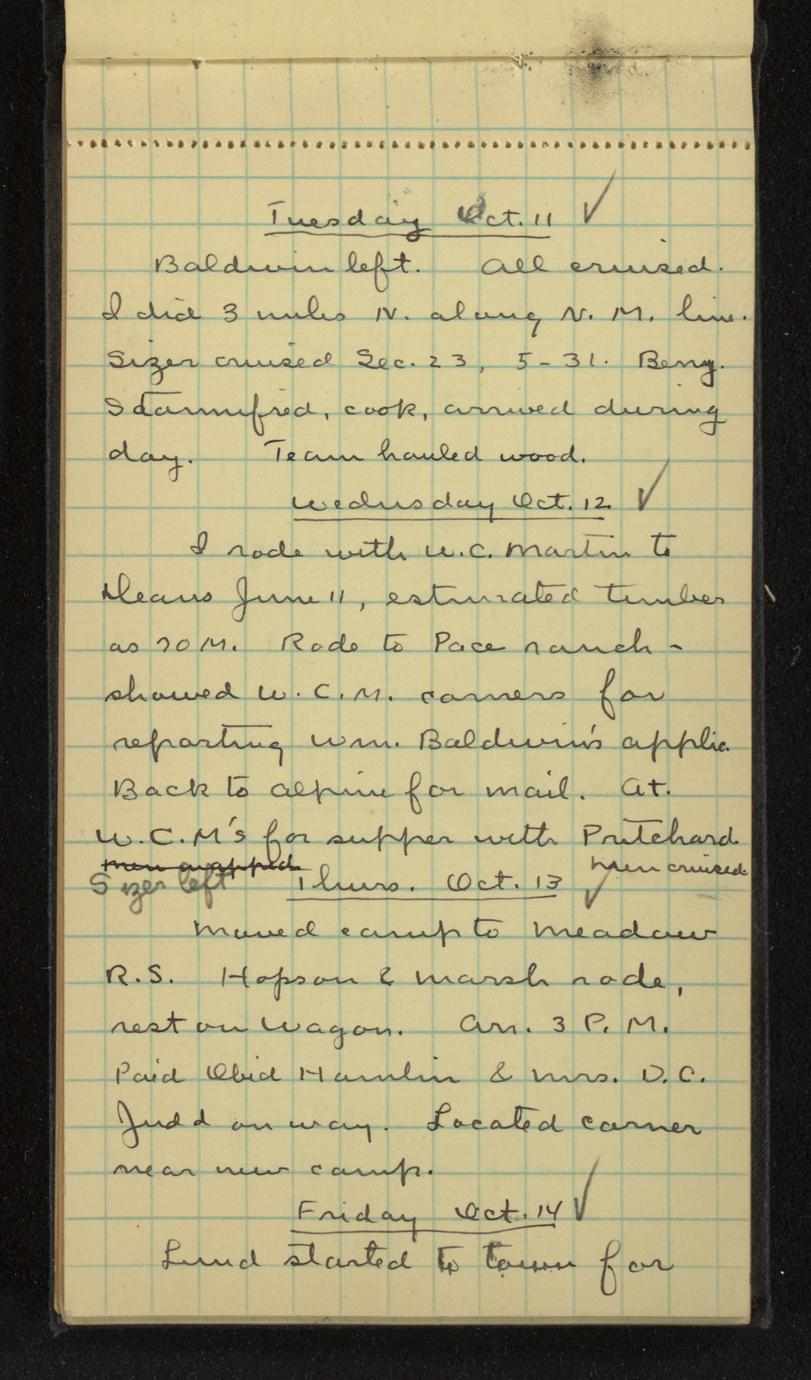 Tuesday Oct. 11 ✓
Baldwin left. All cruised.
I did 3 miles N. along N. M. line.
Sizer cruised Sec. 23, 5-31. Benj.
day. Team hauled wood.
Wednesday Oct. 12 ✓
I rode with W. C. Martin to
Heaus June 11, estimated timber
as 70 M. Rode to Pace ranch -
showed W. C. M. corners for
reporting Wm. Baldwin's applic.
Back to Alpine for mail. At
W. C. M's for supper with Pritchard
men cruised
Sizer left Thurs. Oct. 13 ✓
Moved camp to Meadow
R.S. Hopson & Marsh rode,
rest on wagon. Arr. 3 P. M.
Paid Obid Hamlin & Mrs. D. C.
Judd on way. Located corner
near new camp.
Friday Oct. 14 ✓
Lund started to town for